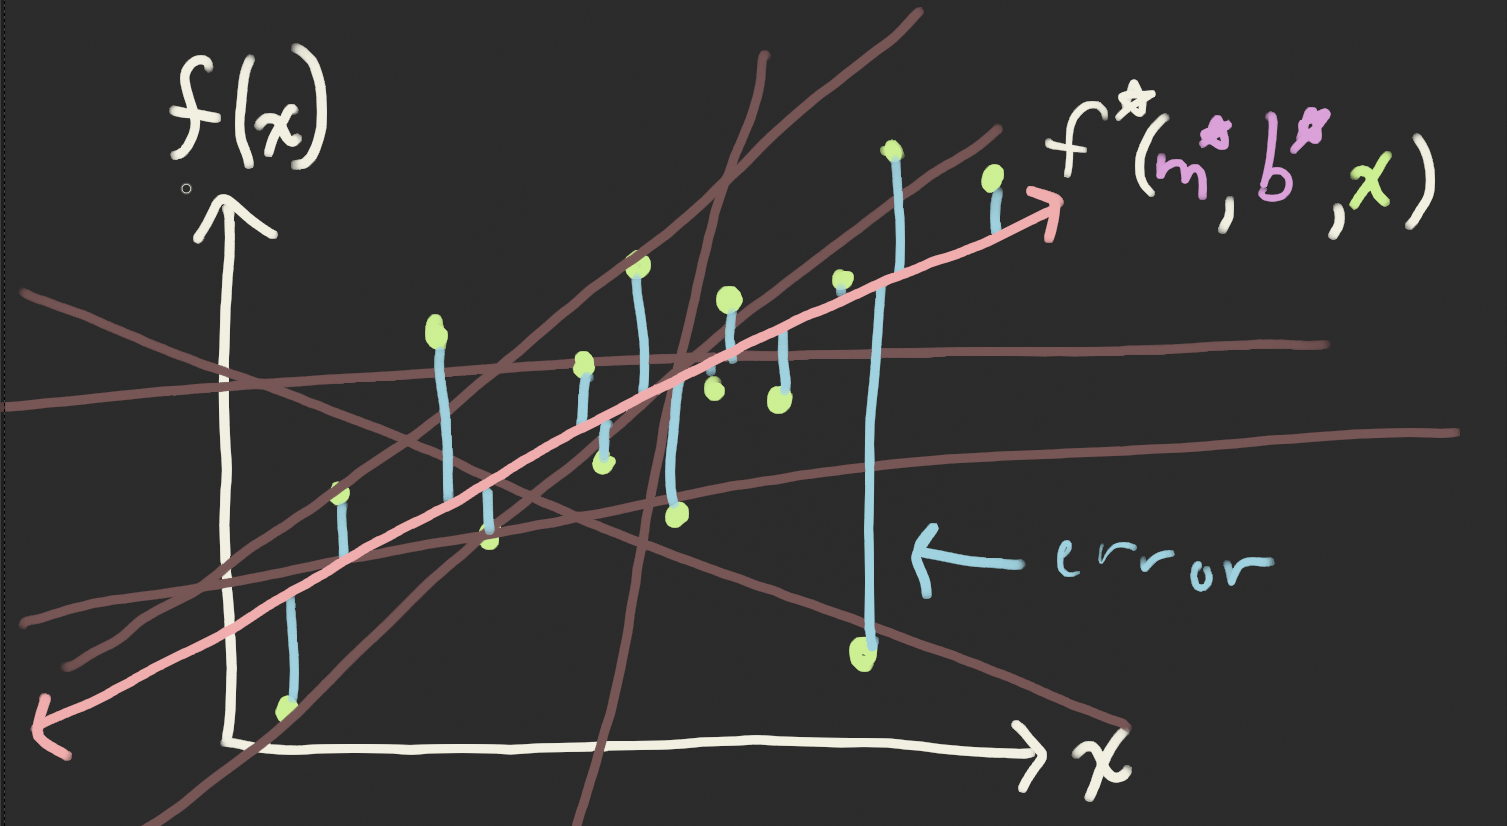 f(x)
f☆(m☆, b☆, x)
error
x